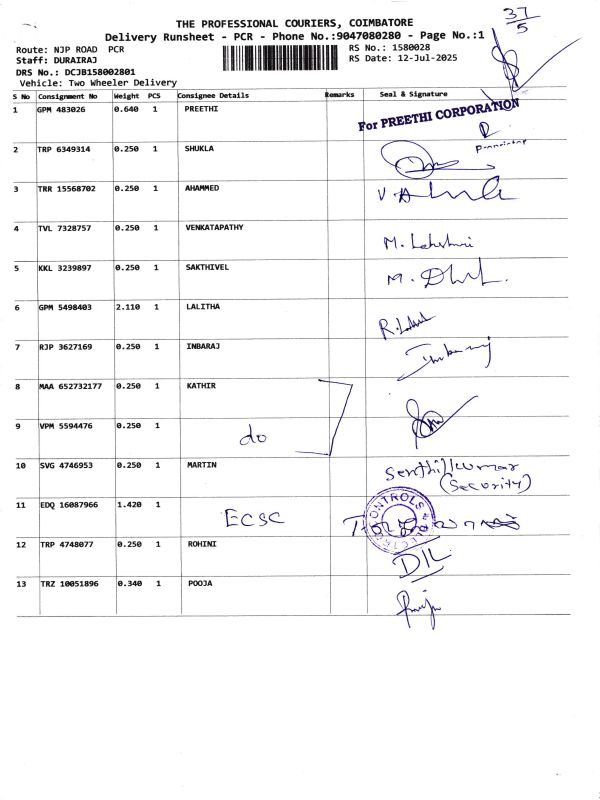 37
5
THE PROFESSIONAL COURIERS, COIMBATORE
Delivery Runsheet - PCR - Phone No.:9047080280 - Page No.:1
Route: NJP ROAD PCR
RS No.: 1580028
Staff: DURAIRAJ
RS Date: 12-Jul-2025
DRS No.: DCJB158002801
Vehicle: Two Wheeler Delivery
S No Consignment No Weight PCS Consignee Details Remarks Seal & Signature
1 GPM 483026 0.640 1 PREETHI For PREETHI CORPORATION
Proprietor
2 TRP 6349314 0.250 1 SHUKLA
3 TRR 15568702 0.250 1 AHAMMED
4 TVL 7328757 0.250 1 VENKATAPATHY M. Lakshmi
5 KKL 3239897 0.250 1 SAKTHIVEL
6 GPM 5498403 2.110 1 LALITHA
7 RJP 3627169 0.250 1 INBARAJ Inbaraj
8 MAA 652732177 0.250 1 KATHIR
9 VPM 5594476 0.250 1 do
10 SVG 4746953 0.250 1 MARTIN Senthilkumar
(Security)
11 EDQ 16087966 1.420 1 ECSC CONTROLS
12 TRP 4748077 0.250 1 ROHINI DIL
13 TRZ 10051896 0.340 1 POOJA